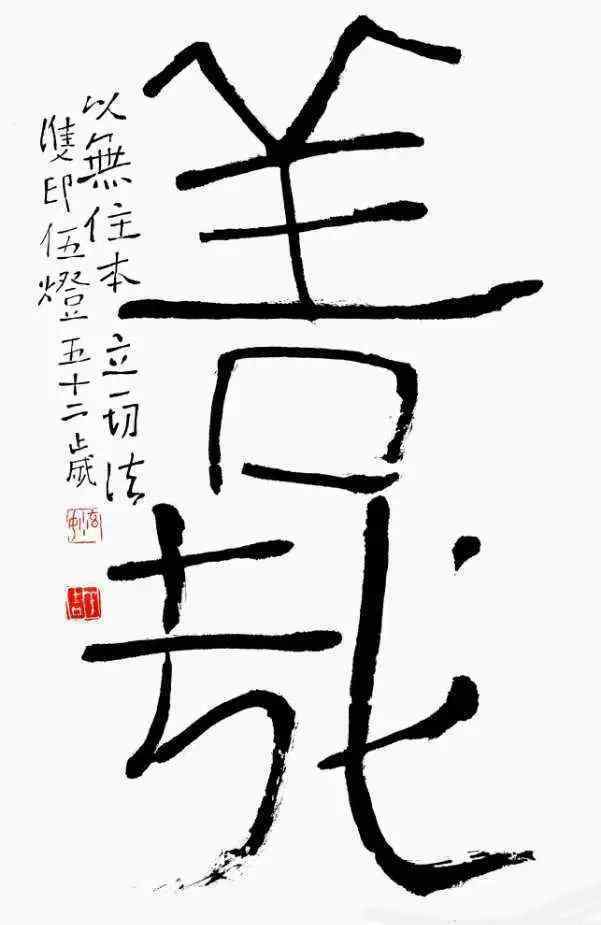 善哉
以無住本立一切法
雙印伍燈五十二歲